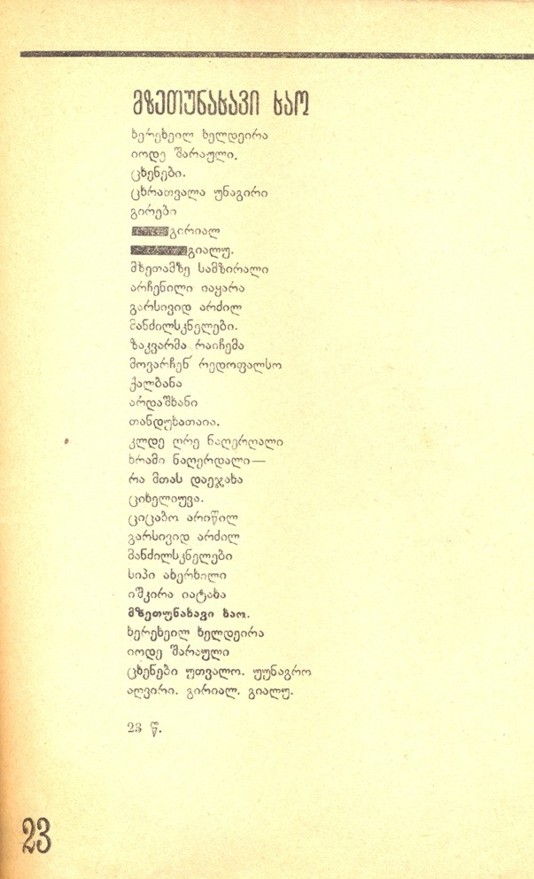 მზეთუნახავი ხაო
ხერეხეილ ხელდეირა
იოდე შარაული.
ცხენები.
ცხრათვალა უნაგირი
გირები
გირიალ
გიალუ.
მზეთამზე სამზირალი
არჩენილი იაყარა
გარსივიდ არძილ
მანძილსკნელები.
ზაკვარმა რაიჩემა
მოვარჩენ რედოფალსო
ქალბანა
არდაშხანი
თანდუხათაია.
კლდე ღრე ნაღერღალი
ხრამი ნაღერდალი—
რა მთას დაეჯახა
ციხელიუვა.
ციცაბო არიწილ
გარსივიდ არძილ
მანძილსკნელები
სიპი ახერხილი
იშკირა იატახა
მზეთუნახავი ხაო.
ხერეხეილ ხელდეირა
იოდე შარაული
ცხენები უთვალო. უუნაგრო
აღვირი. გირიალ. გიალუ.
23 წ.
23